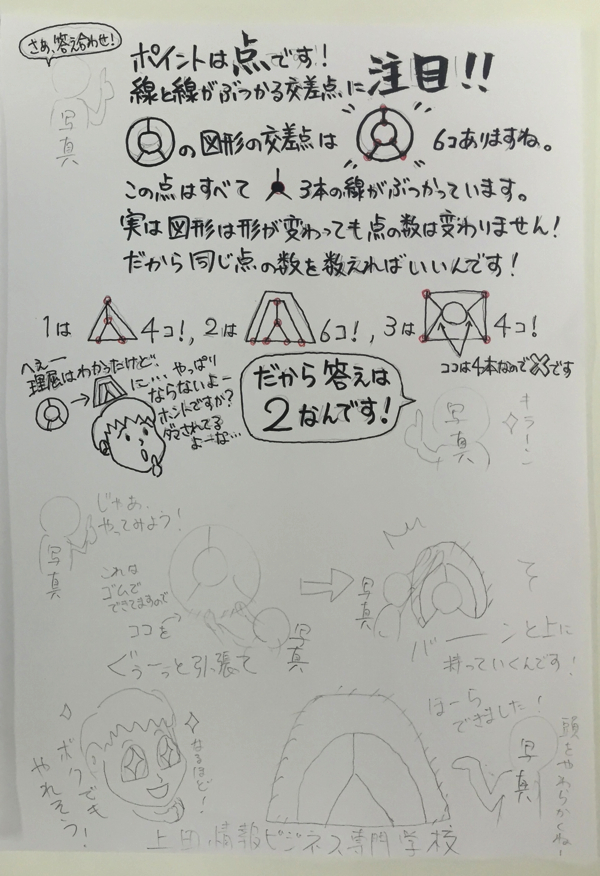 さあ、答え合わせ!
写真
ポイントは点です!
線と線がぶつかる交差点に注目!!
の図形の交差点は 6コありますね。
この点はすべて 3本の線がぶつかっています。
実は図形は形が変わっても点の数は変わりません!
だから同じ点の数を数えればいいんです!
1は 4コ!, 2は 6コ!, 3は 4コ!
ココは4本なので✕です
へぇー
理屈はわかったけど、
→ に… やっぱり
ならないよー
ホントですか?
ダマされてる
よーな…
だから答えは
2なんです!
写真
キラーン
じゃあ、
やってみよう!
写真
これは
ゴムで
できてますので
ココを→
写真
ぐぅーっと引っ張て
写真
バーーンと上に
持っていくんです!
ほーら
できました!
写真
頭をやわらかくねー
なるほど!
ボクでも
やれそう!
上田情報ビジネス専門学校